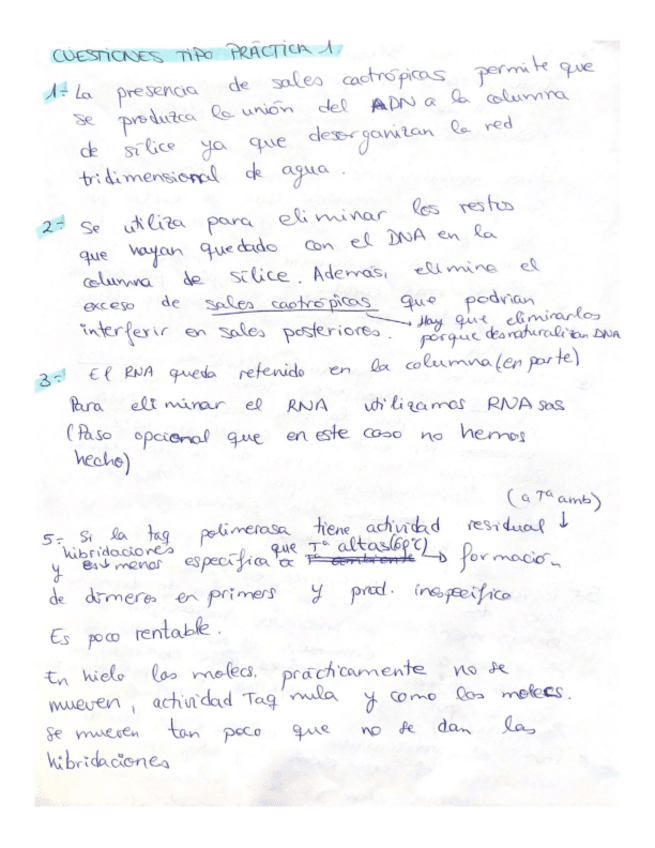 CUESTIONES TIPO PRÁCTICA 1
1- La presencia de sales caotrópicas permite que
se produzca la unión del ADN a la columna
de sílice ya que desorganizan la red
tridimensional de agua.
2- Se utiliza para eliminar los restos
que hayan quedado con el DNA en la
columna de sílice. Además, elimina el
exceso de sales caotrópicas que podrían
interferir en sales posteriores. → Hay que eliminarlos
porque desnaturalizan DNA
3- El RNA queda retenido en la columna (en parte)
Para eliminar el RNA utilizamos RNAsas
(Paso opcional que en este caso no hemos
hecho)
(a Tª amb)
5- Si la taq polimerasa tiene actividad residual ↓
hibridaciones que Tª altas (60ºC)
y es menos específica a Tª ambiente → formación
de dímeros en primers y prod. inespecífico
Es poco rentable.
En hielo las molecs. prácticamente no se
mueven, actividad Taq nula y como las molecs.
se mueven tan poco que no se dan las
hibridaciones